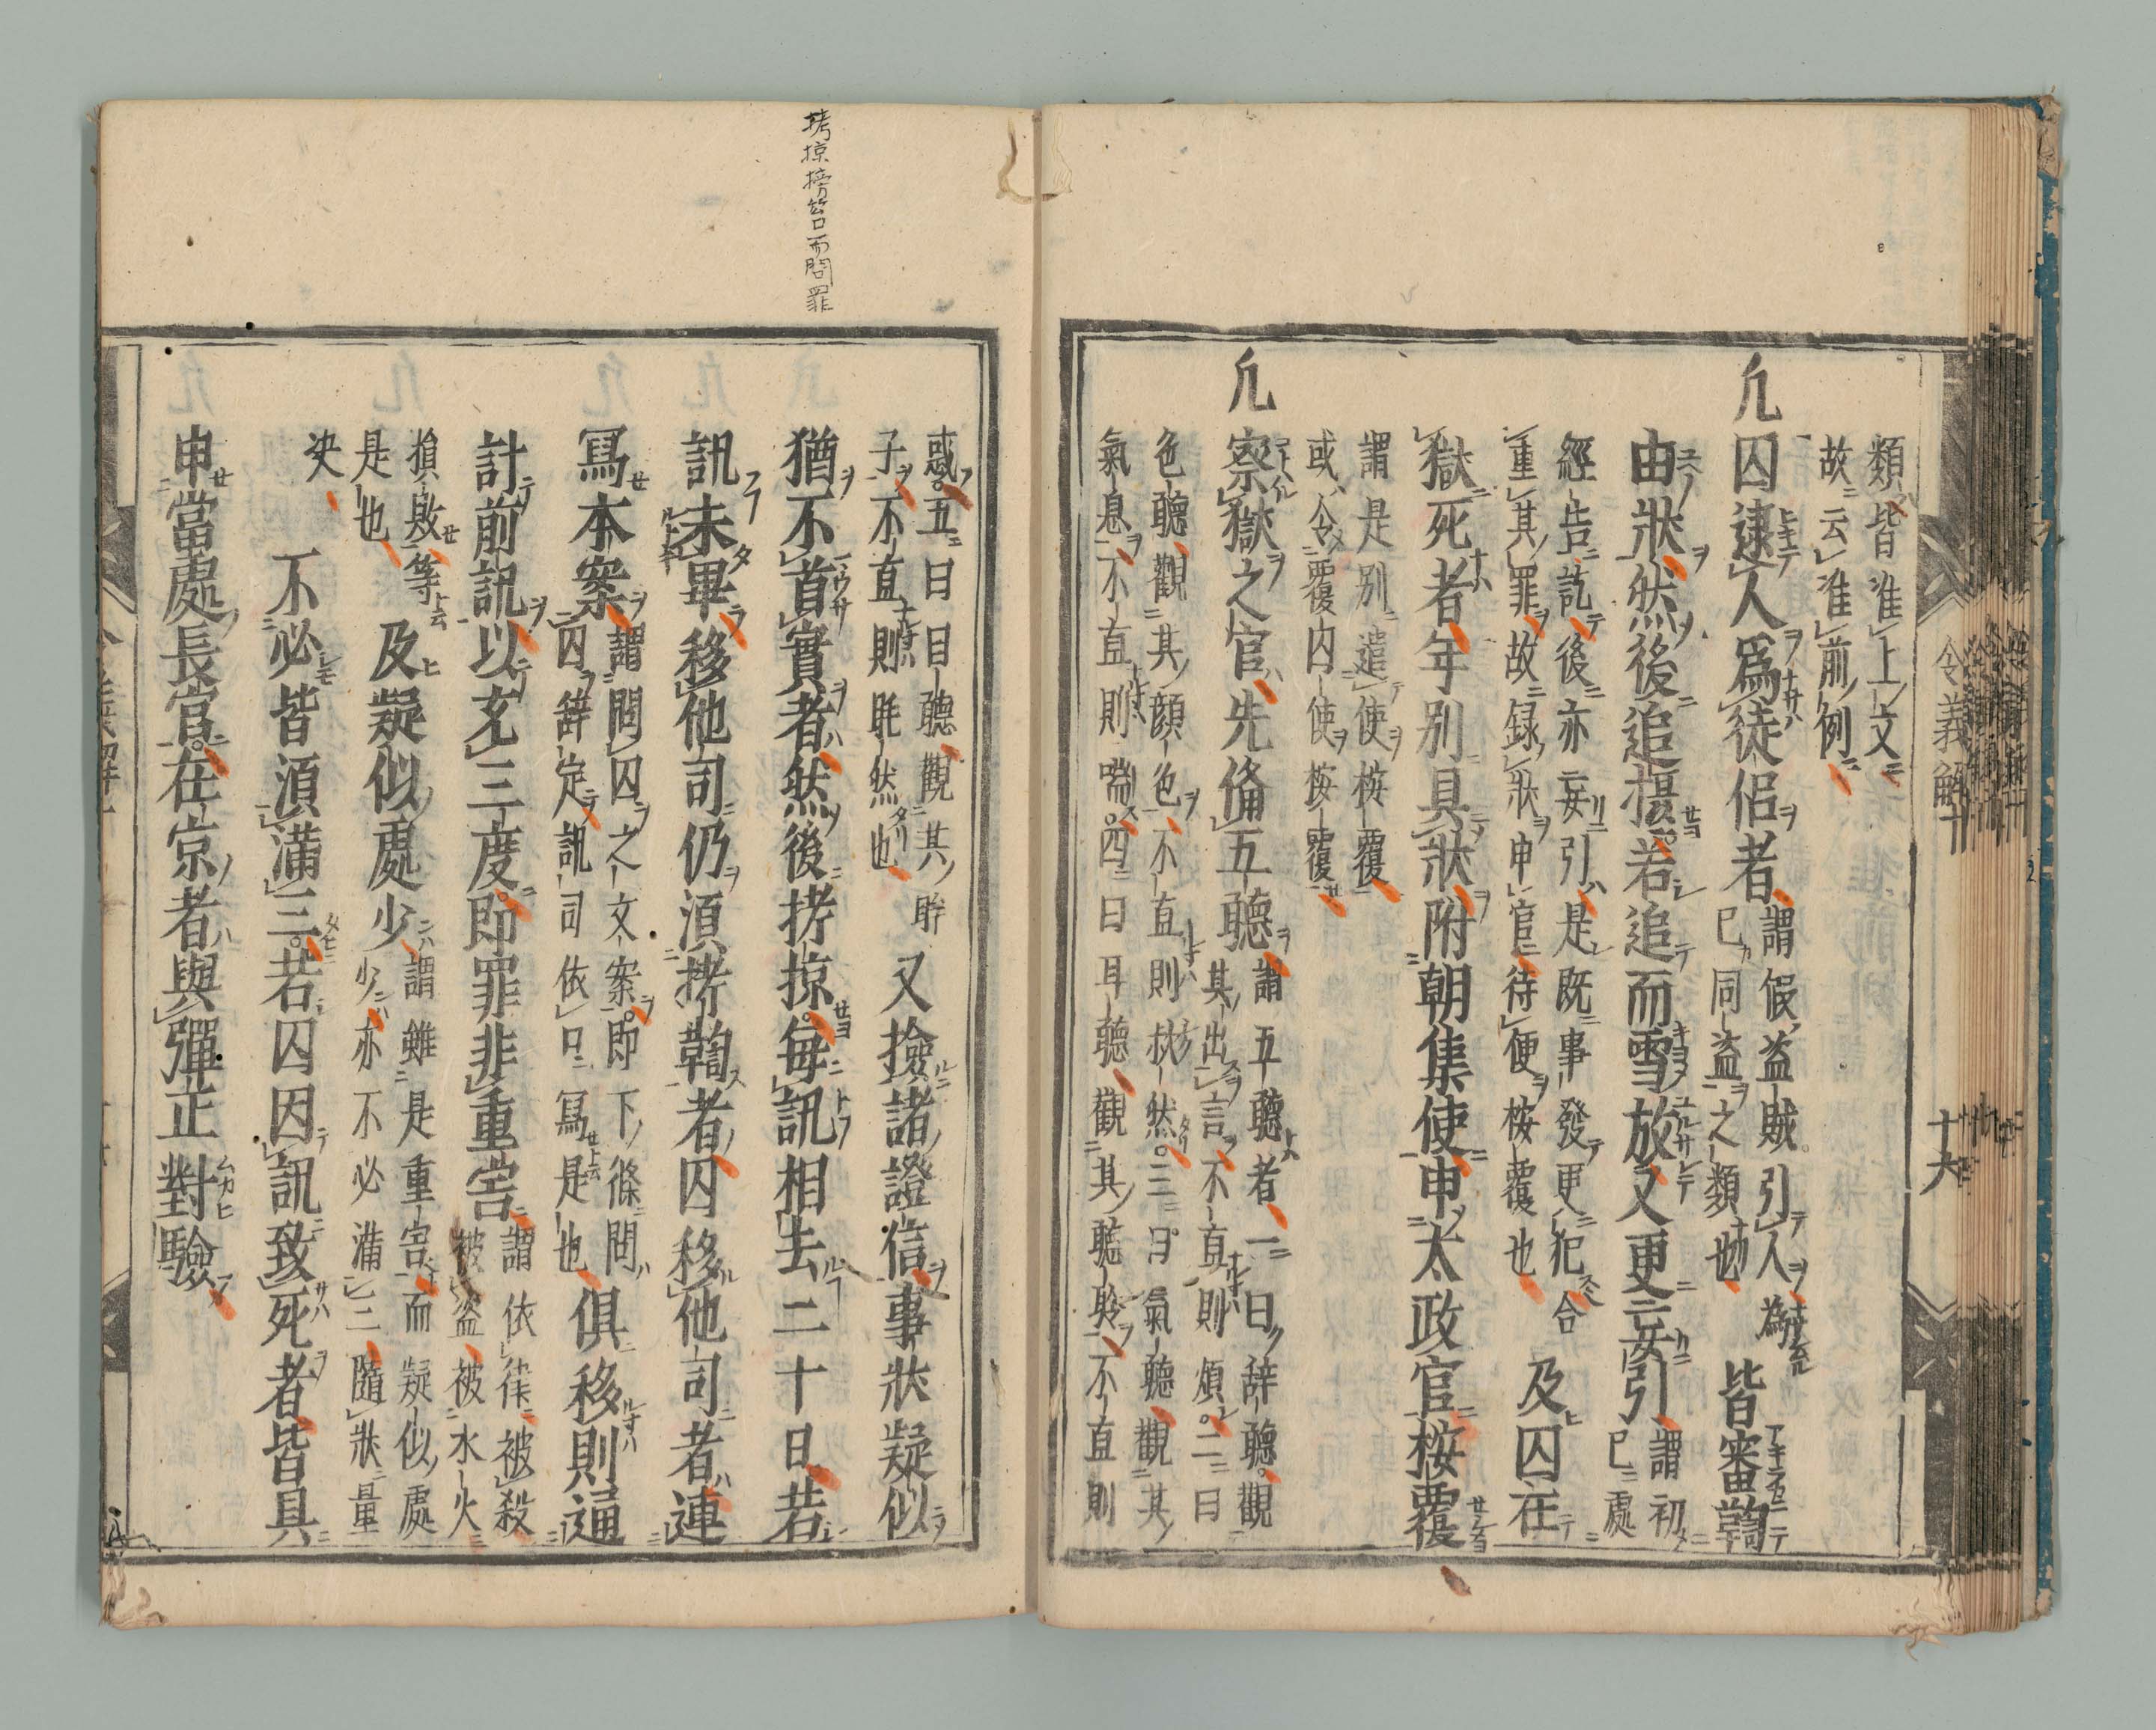 類皆准上文
故云准前例
凢囚逮人爲徒侣者謂假盗賊引人為皆審鞫
已同盗之類也
由狀然後追攝若追而雪放又更妄引謂初
已處
經告訖後亦妄引是既事發更犯合及囚在
重其罪故録狀申官待便桉覆也
獄死者年別具狀附朝集使申太政官桉覆
謂是別遣使桉覆
或令覆囚使桉覆
凢察獄之官先俻五聽謂五聽者一曰辞聽觀
其出言不直則煩二曰
色聽觀其顔色不直則赧然三曰氣聽觀其
氣息不直則喘四曰耳聽觀其聽聆不直則
令義解十
十六
惑五曰目聽觀其眸
子不直則眊然也又撿諸證信事狀疑似
猶不首實者然後拷掠毎訊相去二十日若
訊未畢移他司仍湏拷鞫者囚移他司者連
冩本案謂問囚之文案即下條問
囚辞定訊司依口冩是也俱移則通
計前訊以充三度即罪非重害謂依律被殺
被盗被水火
損敗等
是也及疑似處少謂雖是重害而疑似處
少亦不必滿三隨狀量
决不必皆湏滿三若囚因訊致死者皆具
申當處長官在京者與彈正對驗
拷掠搒笞而問罪